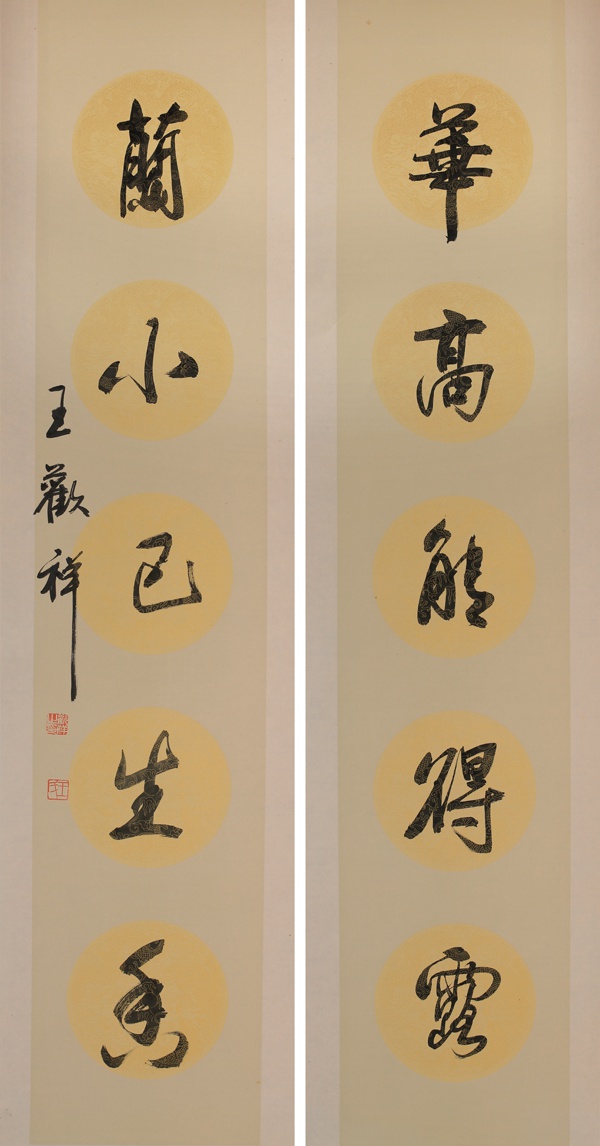 華高能得露
蘭小已生香
王歡祥